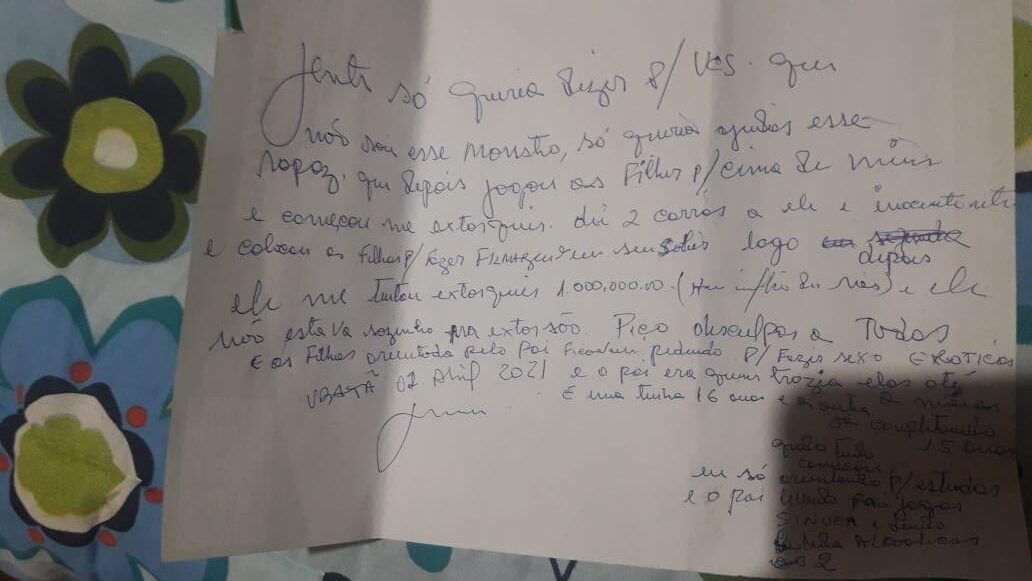 Jente só queria dizer p/ vcs. que
não sou esse monstro, só queria ajudar esse
rapaz, que depois jogou as Filhas p/ cima de mim
e começou me extorquir. dei 2 carros a ele e
e colocou as Filhas p/ fazer FILMAGENS em seus logo depois
ele me tentou extorquir 1.000,000.00 - (Hum milhão de riais) e ele
não estava sozinho na extorsão. Piço desculpas a Todos
E as Filhas orientada pelo Pai pedindo P/ Fazer sexo EROTICOS
UBATÃ 02 Abril 2021 e o pai era quem trazia elas até
E uma tinha 16 anos e a outra
já completando
15 anos
quando tudo
começou
eu só orientando p/ estudos
e o pai para jogar
SINUCA e
Alcoolicas
as 2